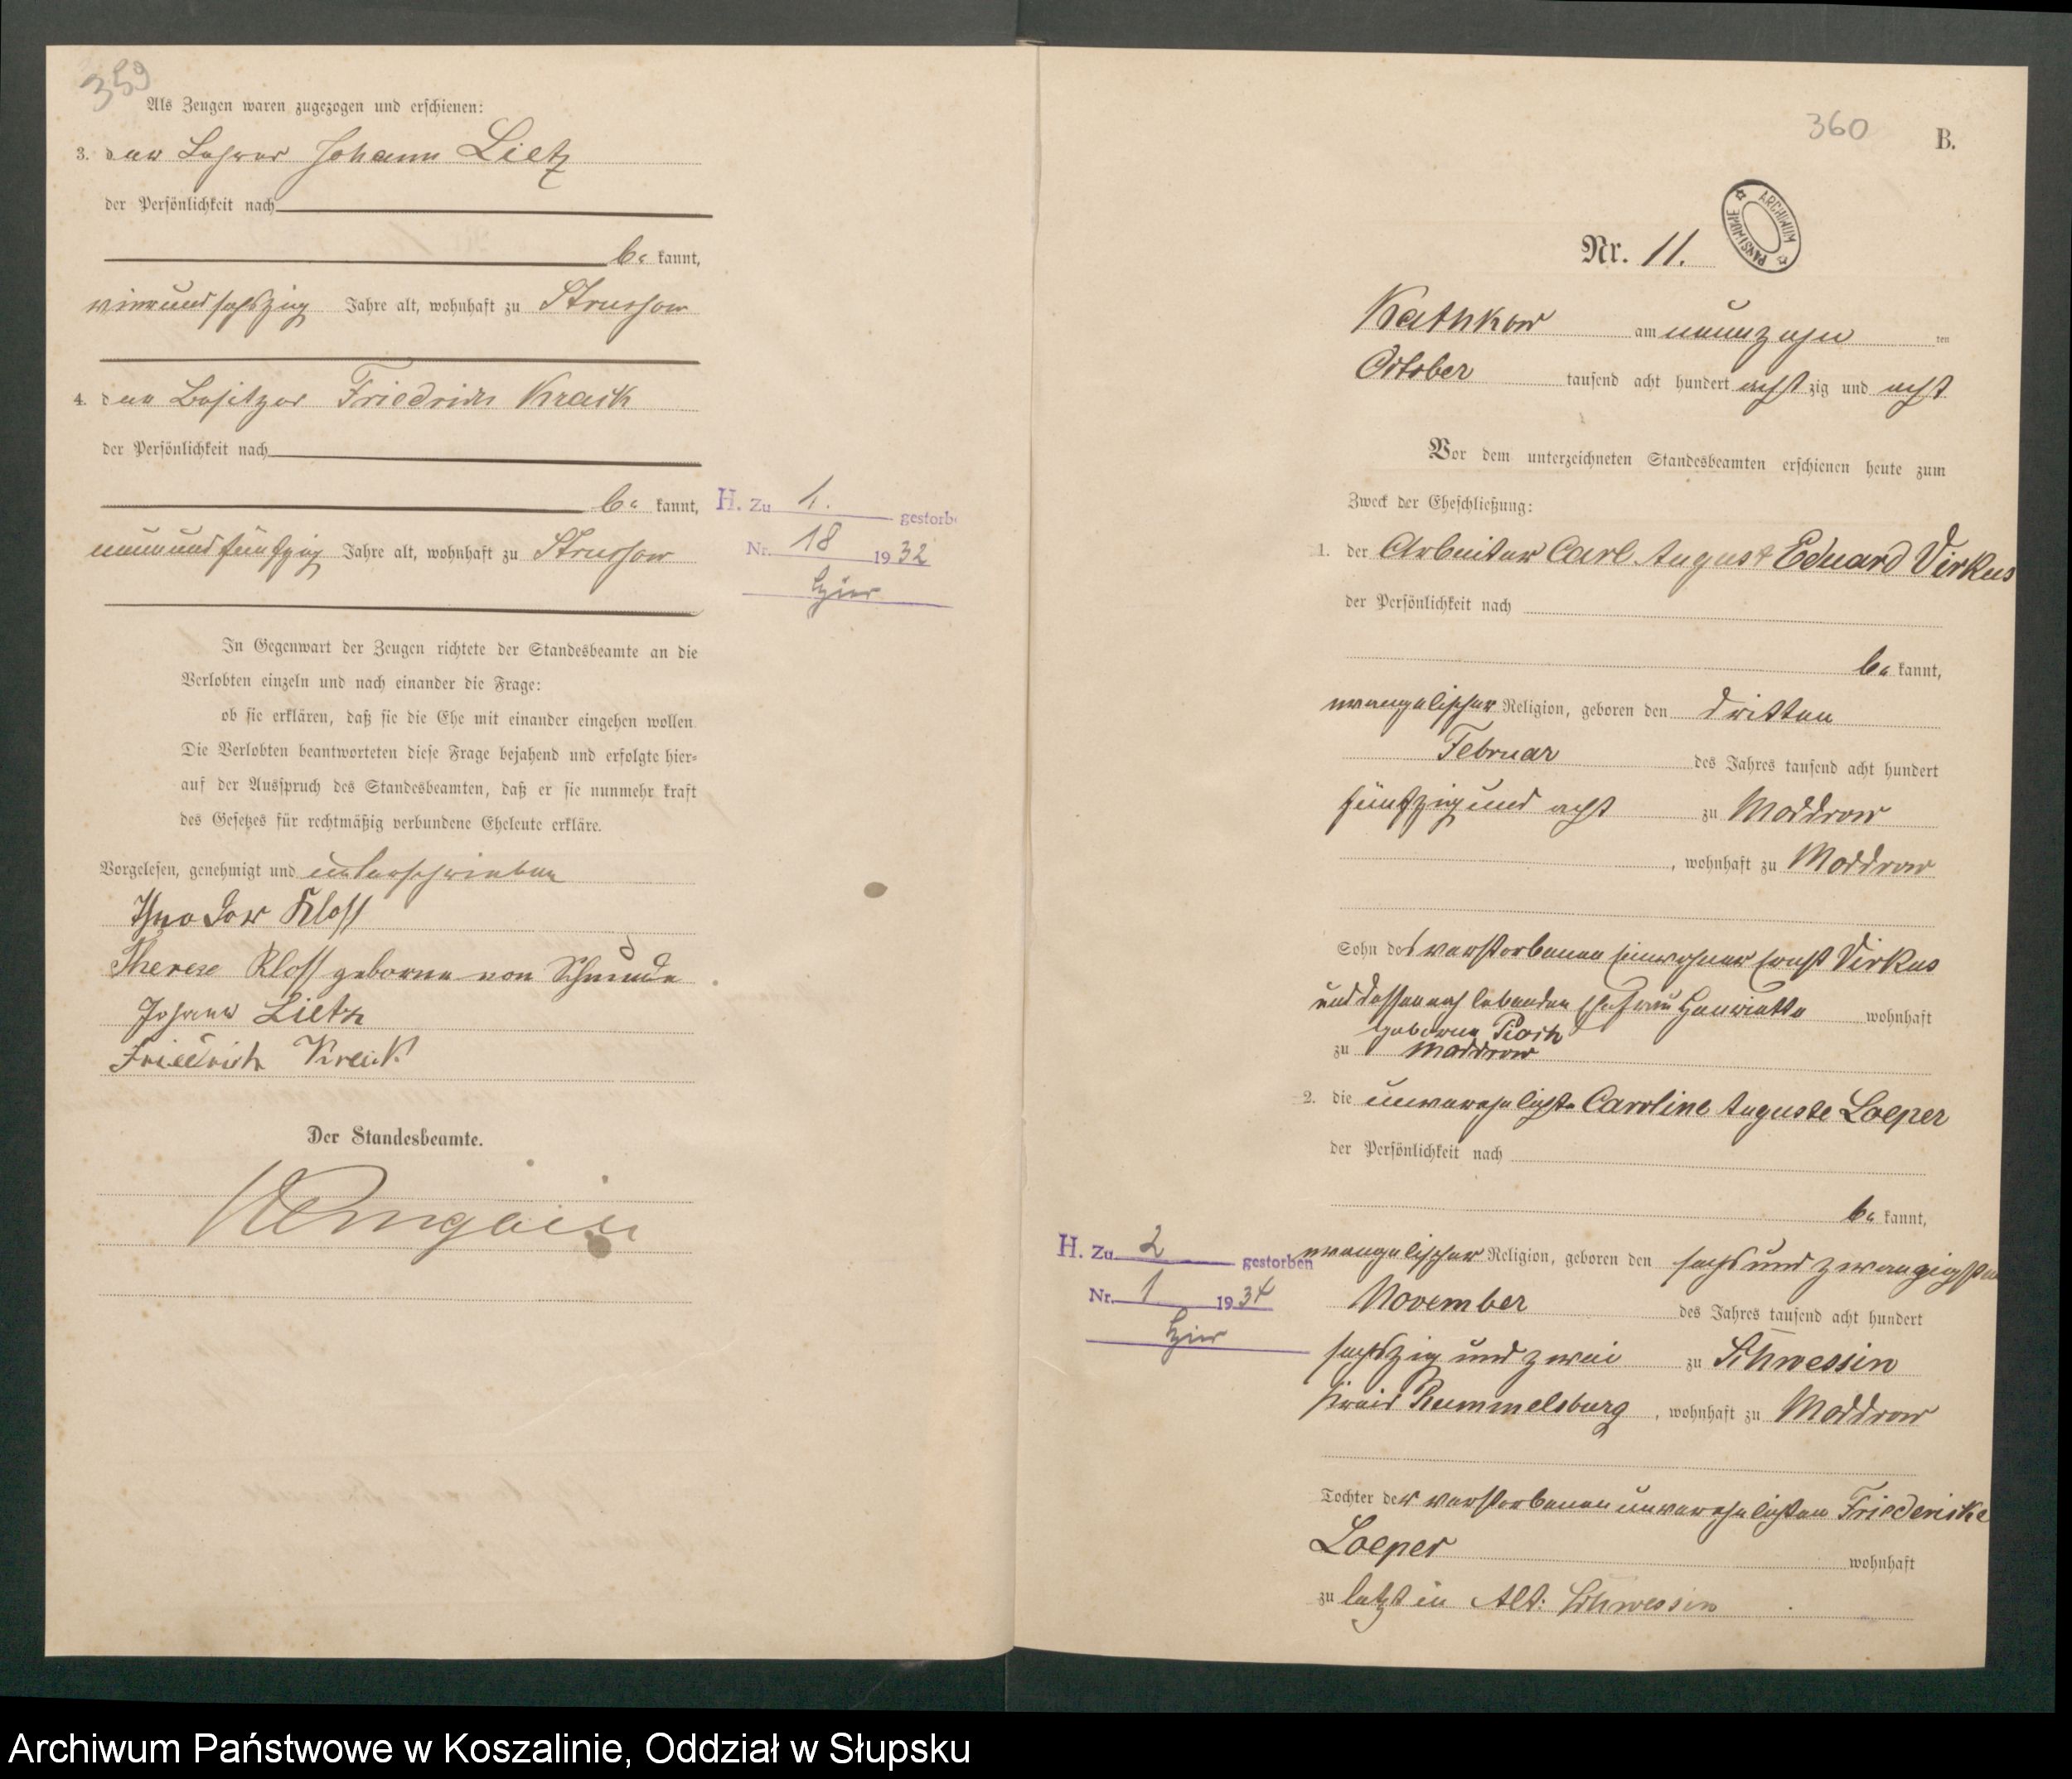 359
Als Zeugen waren zugezogen und erschienen:
3. der Lehrer Johann Lietz
der Persönlichkeit nach
be kannt,
vierundsechszig Jahre alt, wohnhaft zu Strussow
4. der Besitzer Friedrich Kraik
der Persönlichkeit nach
be kannt,
neunundfünfzig Jahre alt, wohnhaft zu Strussow
H. Zu 1. gestorbe
Nr. 18 1932
hier
In Gegenwart der Zeugen richtete der Standesbeamte an die
Verlobten einzeln und nach einander die Frage:
ob sie erklären, daß sie die Ehe mit einander eingehen wollen.
Die Verlobten beantworteten diese Frage bejahend und erfolgte hier=
auf der Ausspruch des Standesbeamten, daß er sie nunmehr kraft
des Gesetzes für rechtmäßig verbundene Eheleute erkläre.
Vorgelesen, genehmigt und unterschrieben
Theodor Kloss
Therese Kloss geborene von Schmude
Johann Lietz
Friedrich Kraik
Der Standesbeamte.
360
B.
ARCHIWUM PAŃSTWOWE
Nr. 11.
Kathkow am neunzehn ten
October tausend acht hundert acht zig und acht
Vor dem unterzeichneten Standesbeamten erschienen heute zum
Zweck der Eheschließung:
1. der Arbeiter Carl August Eduard Virkus
der Persönlichkeit nach
be kannt,
evangelischer Religion, geboren den dritten
Februar des Jahres tausend acht hundert
fünfzig und acht zu Moddrow
, wohnhaft zu Moddrow
Sohn des verstorbenen Einwohner Ernst Virkus
und dessen noch lebenden Ehefrau Henriette wohnhaft
geborene Pioch
zu Moddrow
2. die unverehelichte Caroline Auguste Loeper
der Persönlichkeit nach
be kannt,
H. Zu 2 gestorben
Nr. 1 1934
hier
evangelischer Religion, geboren den sechsundzwanzigsten
November des Jahres tausend acht hundert
sechszig und zwei zu Schwessin
Kreis Rummelsburg , wohnhaft zu Moddrow
Tochter der verstorbenen unverehelichten Friedericke
Loeper wohnhaft
zu letzt in Alt: Schwessin
Archiwum Państwowe w Koszalinie, Oddział w Słupsku